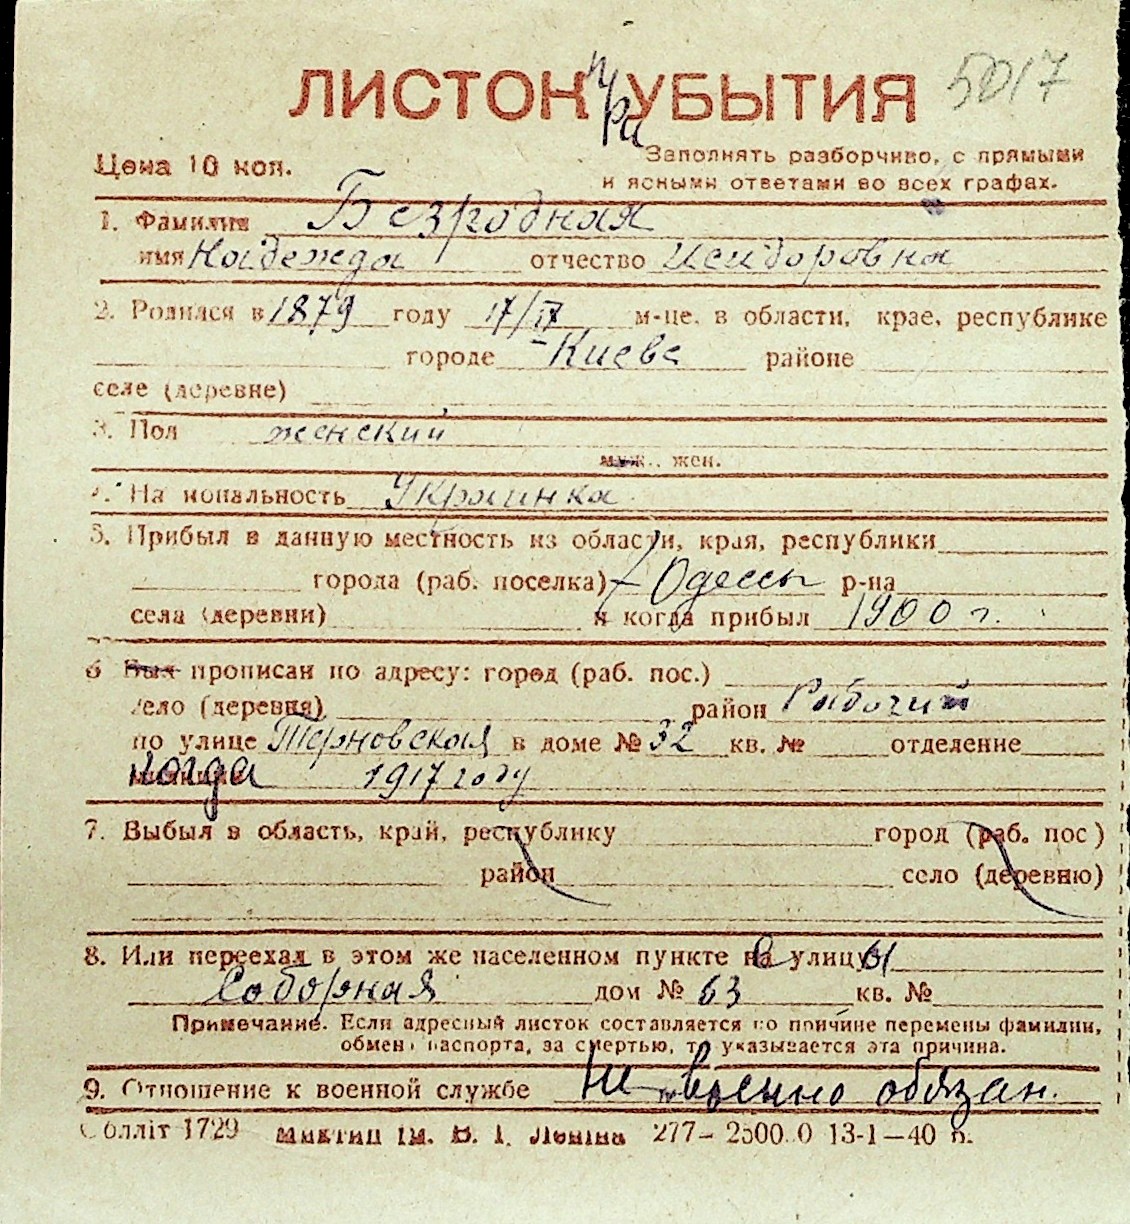 ЛИСТОК при УБЫТИЯ 5017
Цена 10 коп.
Заполнять разборчиво, с прямыми
и ясными ответами во всех графах.
1. Фамилия Безродная
имя Надежда отчество Исидоровна
2. Родился в 1879 году 17/IX м-це, в области, крае, республике
городе Киеве районе
селе (деревне)
3. Пол женский
муж., жен.
4. На иональность Украинка
5. Прибыл в данную местность из области, края, республики
города (раб. поселка) Одессы р-на
села (деревни) и когда прибыл 1900 г.
6 Был прописан по адресу: город (раб. пос.)
село (деревня) район Рабочий
по улице Терновская в доме № 32 кв. № отделение
когда 1917 году
7. Выбыл в область, край, республику город (раб. пос)
район село (деревню)
8. Или переехал в этом же населенном пункте в улицы
Соборная дом № 63 кв. №
Примечание. Если адресный листок составляется по причине перемены фамилии,
обмен паспорта, за смертью, то указывается эта причина.
9. Отношение к военной службе Не военно обязан.
Обліт 1729 ім. В. І. Леніна 277— 13-1—40